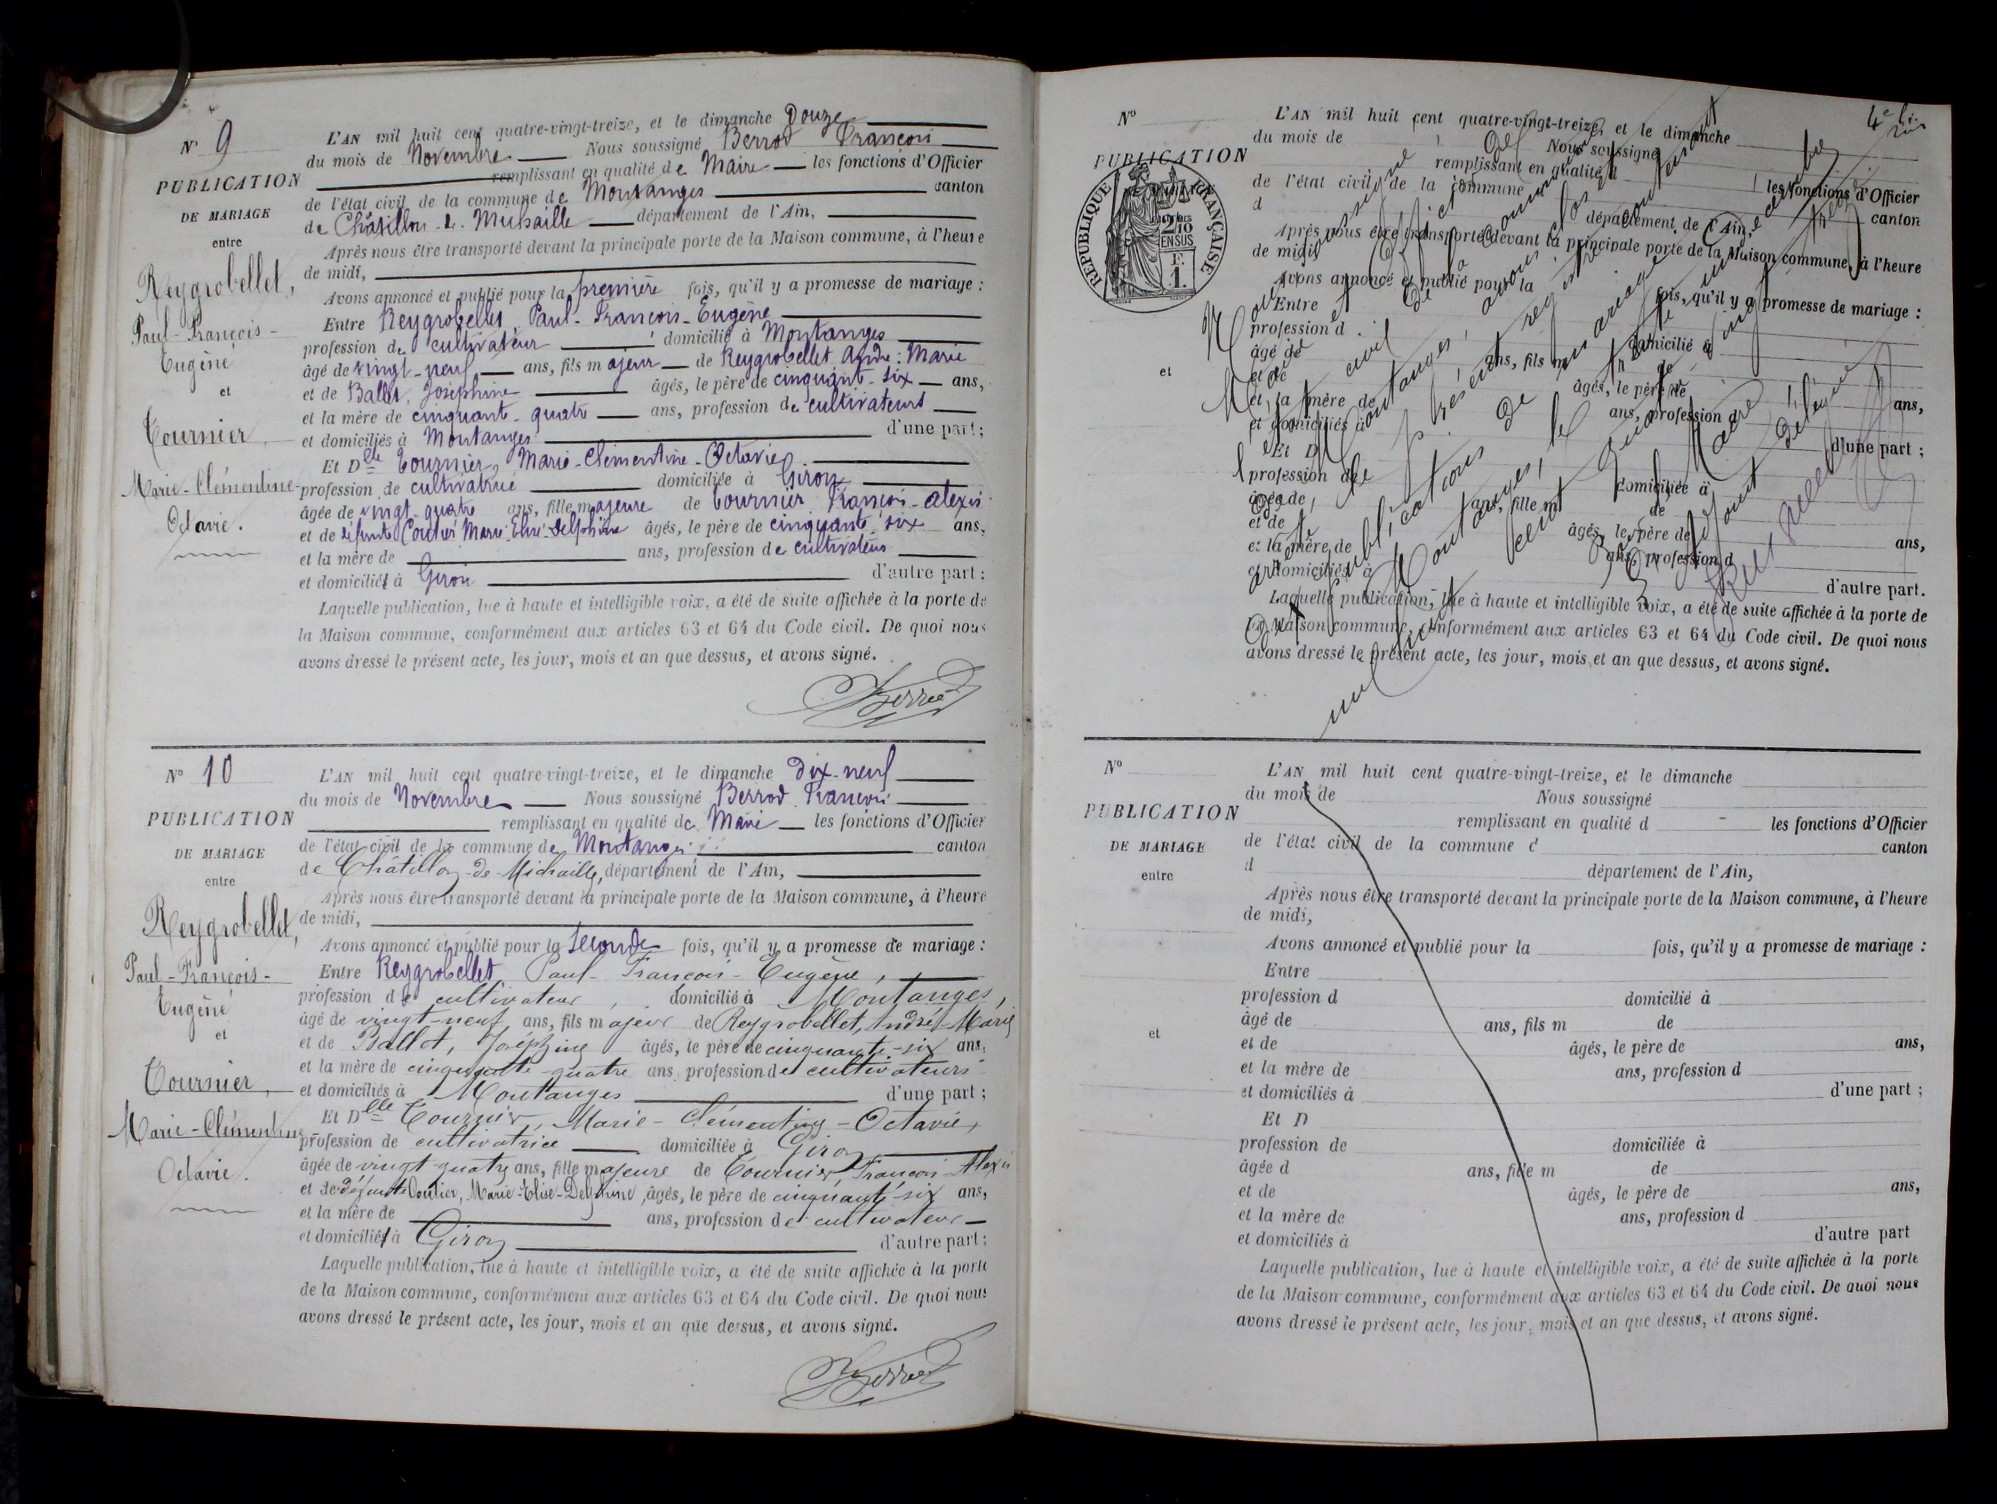 N° 9
PUBLICATION
DE MARIAGE
entre
Reygrobellet,
Paul-François-
Eugène
et
Tournier,
Marie-Clémentine-
Octavie.
L'AN mil huit cent quatre-vingt-treize, et le dimanche Douze
du mois de Novembre Nous soussigné Berrod François
remplissant en qualité de Maire les fonctions d'Officier
de l'état civil de la commune de Montanges canton
de Châtillon-de-Michaille département de l'Ain,
Après nous être transporté devant la principale porte de la Maison commune, à l'heure
de midi,
Avons annoncé et publié pour la première fois, qu'il y a promesse de mariage :
Entre Reygrobellet Paul-François-Eugène
profession de cultivateur domicilié à Montanges
âgé de vingt-neuf ans, fils majeur de Reygrobellet André-Marie
et de Ballot, Joséphine âgés, le père de cinquante-six ans,
et la mère de cinquante-quatre ans, profession de cultivateurs
et domiciliés à Montanges d'une part ;
Et Dlle Tournier, Marie-Clémentine-Octavie
profession de cultivatrice domiciliée à Giron
âgée de vingt-quatre ans, fille majeure de Tournier François-Alexis
et de défunte Coutier Marie-Elise-Delphine âgés, le père de cinquante-six ans,
et la mère de ans, profession de cultivateur
et domicilié à Giron d'autre part :
Laquelle publication, lue à haute et intelligible voix, a été de suite affichée à la porte de
la Maison commune, conformément aux articles 63 et 64 du Code civil. De quoi nous
avons dressé le présent acte, les jour, mois et an que dessus, et avons signé.
Berrod
N° 10
PUBLICATION
DE MARIAGE
entre
Reygrobellet,
Paul-François-
Eugène
et
Tournier,
Marie-Clémentine
Octavie.
L'AN mil huit cent quatre-vingt-treize, et le dimanche dix-neuf
du mois de Novembre Nous soussigné Berrod François
remplissant en qualité de Maire les fonctions d'Officier
de l'état civil de la commune de Montanges canton
de Châtillon-de-Michaille, département de l'Ain,
Après nous être transporté devant la principale porte de la Maison commune, à l'heure
de midi,
Avons annoncé et publié pour la seconde fois, qu'il y a promesse de mariage :
Entre Reygrobellet Paul-François-Eugène,
profession de cultivateur, domicilié à Montanges,
âgé de vingt-neuf ans, fils majeur de Reygrobellet, André-Marie
et de Ballot, Joséphine âgés, le père de cinquante-six ans,
et la mère de cinquante-quatre ans, profession de cultivateurs
et domiciliés à Montanges d'une part ;
Et Dlle Tournier, Marie-Clémentine-Octavie,
profession de cultivatrice domiciliée à Giron
âgée de vingt-quatre ans, fille majeure de Tournier François-Alexis
et de défunte Coutier, Marie-Elise-Delphine, âgés, le père de cinquante-six ans,
et la mère de ans, profession de cultivateur
et domicilié à Giron d'autre part :
Laquelle publication, lue à haute et intelligible voix, a été de suite affichée à la porte
de la Maison commune, conformément aux articles 63 et 64 du Code civil. De quoi nous
avons dressé le présent acte, les jour, mois et an que dessus, et avons signé.
Berrod
4e
N°
PUBLICATION
RÉPUBLIQUE FRANÇAISE
2/10
EN SUS
F.
1.
et
L'AN mil huit cent quatre-vingt-treize, et le dimanche
du mois de Nous soussigné
remplissant en qualité d les fonctions d'Officier
de l'état civil de la commune canton
d département de l'Ain,
Après nous être transporté devant la principale porte de la Maison commune, à l'heure
de midi,
Avons annoncé et publié pour la fois, qu'il y a promesse de mariage :
Entre
profession d domicilié à
âgé de ans, fils m
et de âgés, le père de ans,
et la mère de ans, profession d
et domiciliés à d'une part ;
Et D
profession de domiciliée à
âgée de ans, fille m de
et de âgés, le père de ans,
et la mère de ans, profession d
et domiciliés à d'autre part.
Laquelle publication, lue à haute et intelligible voix, a été de suite affichée à la porte de
la Maison commune, conformément aux articles 63 et 64 du Code civil. De quoi nous
avons dressé le présent acte, les jour, mois et an que dessus, et avons signé.
Nous soussigné
Maire et Officier de
l'état civil de la commune
de Montanges, avons clos
et arrêté le présent registre contenant
dix publications de mariage
à Montanges, le trente un décembre
mil huit cent quatre vingt treize
Le Maire
N°
PUBLICATION
DE MARIAGE
entre
et
L'AN mil huit cent quatre-vingt-treize, et le dimanche
du mois de Nous soussigné
remplissant en qualité d les fonctions d'Officier
de l'état civil de la commune d canton
d département de l'Ain,
Après nous être transporté devant la principale porte de la Maison commune, à l'heure
de midi,
Avons annoncé et publié pour la fois, qu'il y a promesse de mariage :
Entre
profession d domicilié à
âgé de ans, fils m de
et de âgés, le père de ans,
et la mère de ans, profession d
et domiciliés à d'une part ;
Et D
profession de domiciliée à
âgée d ans, fille m de
et de âgés, le père de ans,
et la mère de ans, profession d
et domiciliés à d'autre part
Laquelle publication, lue à haute et intelligible voix, a été de suite affichée à la porte
de la Maison commune, conformément aux articles 63 et 64 du Code civil. De quoi nous
avons dressé le présent acte, les jour, mois et an que dessus, et avons signé.